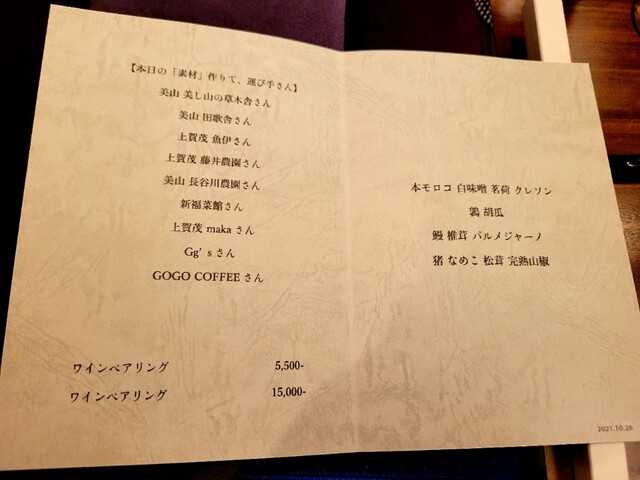 【本日の「素材」作りて、運び手さん】
美山 美し山の草木舎さん
美山 田歌舎さん
上賀茂 魚伊さん
上賀茂 藤井農園さん
美山 長谷川農園さん
新福菜館さん
上賀茂 makaさん
Gg’sさん
GOGO COFFEEさん
ワインペアリング 5,500-
ワインペアリング 15,000-
本モロコ 白味噌 茗荷 クレソン
鶉 胡瓜
鰻 椎茸 パルメジャーノ
猪 なめこ 松茸 完熟山椒
2021.10.26